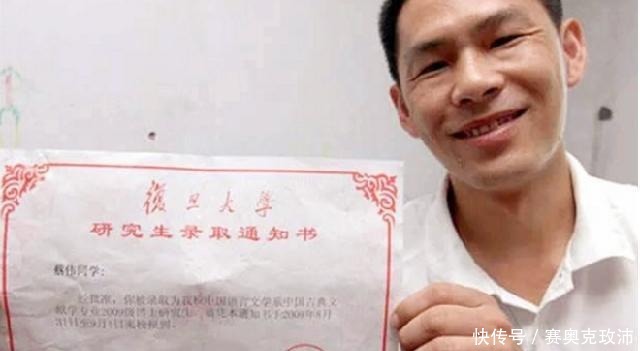 復旦大學
研究生录取通知书
蔡伟同学:
经批准，你被录取为我校中国语言文学系中国古典文
献学专业2009级博士研究生，请凭本通知书于2009年8月
31日至9月1日来校报到。
快传号 / 赛奥克玫沛